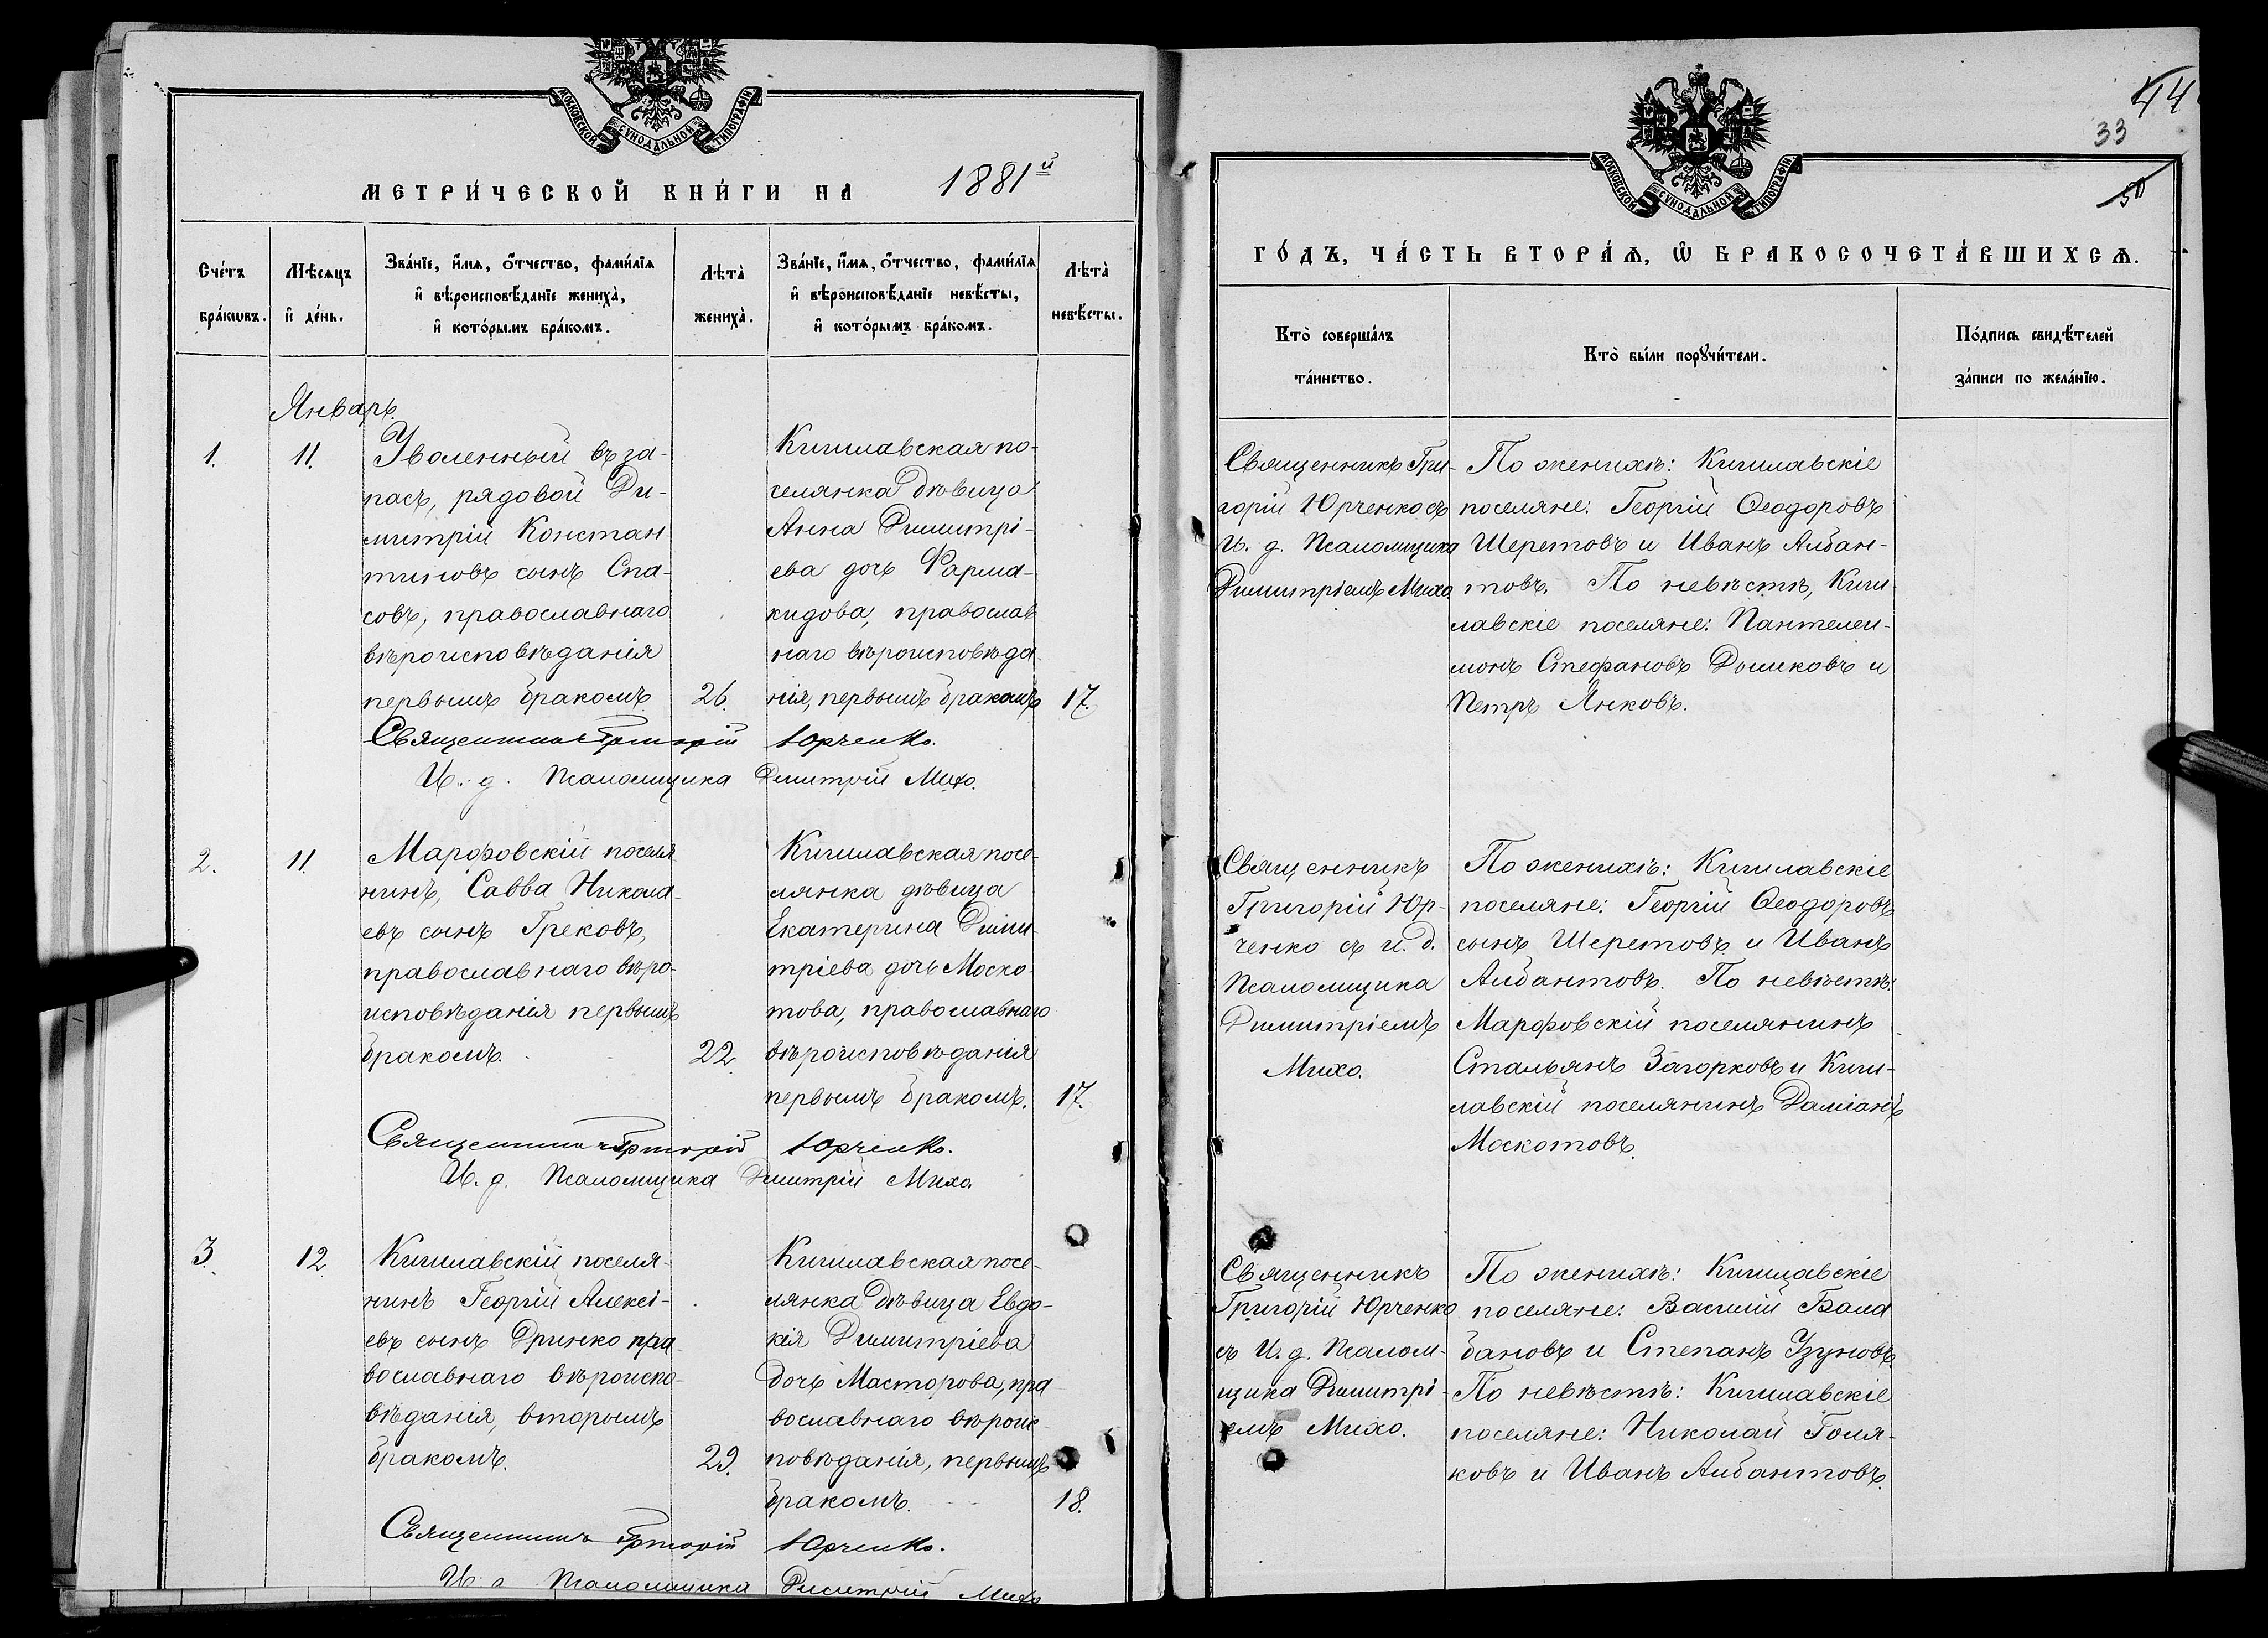 МОСКОВСКОЙ СѴНОДАЛЬНОЙ ТИПОГРАФІИ
МЕТРИ́ЧЕСКОЙ КНИ́ГИ НА 1881й
Сче́тъ бра́кѡвъ.
Мѣ́сяцъ и҆ де́нь.
Зва́нїе, и҆́мѧ, ѻ҆́тчество, фами́лїѧ
и҆ вѣроисповѣ́данїе женихѐ,
и҆ кото́рымъ бра́комъ.
Лѣта̀
жениха̀.
Зва́нїе, и҆́мѧ, ѻ҆́тчество, фами́лїѧ
и҆ вѣроисповѣ́данїе невѣ́сты,
и҆ кото́рымъ бра́комъ.
Лѣта̀
невѣ́сты.
Январь.
1.
11.
Уволенный въ за-
пасъ, рядовой Ди-
митрій Констан
тиновъ сынъ Спа-
совъ, православнаго
вѣроисповѣданія
первымъ бракомъ
26.
Кишлавская по-
селянка дѣвица
Анна Димитрі-
ева дочь Фарма-
кидова, православ
наго вѣроисповѣда
нія, первымъ бракомъ
17.
Священникъ Григорій Юрченко.
И. д. Псаломщика Дмитрій Михо.
2.
11.
Марфовскій поселя
нинъ, Савва Никола-
евъ сынъ Грековъ,
православнаго вѣро-
исповѣданія первымъ
бракомъ.
22.
Кишлавская посе-
лянка дѣвица
Екатерина Дими-
тріева дочь Моско-
това, православнаго
вѣроисповѣданія
первымъ бракомъ.
17.
Священникъ Григорій Юрченко.
И. д. Псаломщика Дмитрій Михо.
3.
12
Кишлавскій поселя-
нинъ Георгій Алексі-
евъ сынъ Дринко пра
вославнаго вѣроиспо-
вѣданія, вторымъ
бракомъ.
29.
Кишлавская посе-
лянка дѣвица Евдо-
кія Димитріева
дочь Масторова, пра
вославнаго вѣроис
повѣданія, первымъ
бракомъ.
18.
Священникъ Григорій Юрченко.
И д Псаломщика Дмитрій Михо
44
33
50
МОСКОВСКОЙ СѴНОДАЛЬНОЙ ТИПОГРАФІИ
ГО́ДЪ, ЧА́СТЬ ВТОРА́Ѧ, Ѽ БРАКОСОЧЕТА́ВШИХСѦ.
Кто̀ соверша́лъ
та́инство.
Кто̀ бы́ли порꙋчи́тели.
По́дпись свидѣ́телей
за́писи по жела́нїю.
Священникъ Гри-
горій Юрченко съ
И. д. Псаломщика
Димитріемъ Михо
По женихѣ: Кишлавскіе
поселяне: Георгій Ѳеодоровъ
Шеретовъ и Иванъ Албан-
товъ. По невѣстѣ, Киш-
лавскіе поселяне: Пантелеи-
монъ Стефановъ Домковъ и
Петръ Янковъ.
Священникъ
Григорій Юр-
ченко съ и. д.
Псаломщика
Димитріемъ
Михо.
По женихѣ: Кишлавскіе
поселяне: Георгій Ѳеодоровъ
сынъ Шеретовъ и Иванъ
Албантовъ. По невѣстѣ:
Марфовскій поселянинъ
Стальянъ Загорковъ и Киш-
лавскій поселянинъ Даміанъ
Москотовъ.
Священникъ
Григорій Юрченко
съ И. д. Псалом-
щика Димитрі-
емъ Михо.
По женихѣ: Кишлавскіе
поселяне: Василій Бала
бановъ и Степанъ Узуновъ
По невѣстѣ: Кишлавскіе
поселяне: Николай Голя-
ковъ и Иванъ Албантовъ.